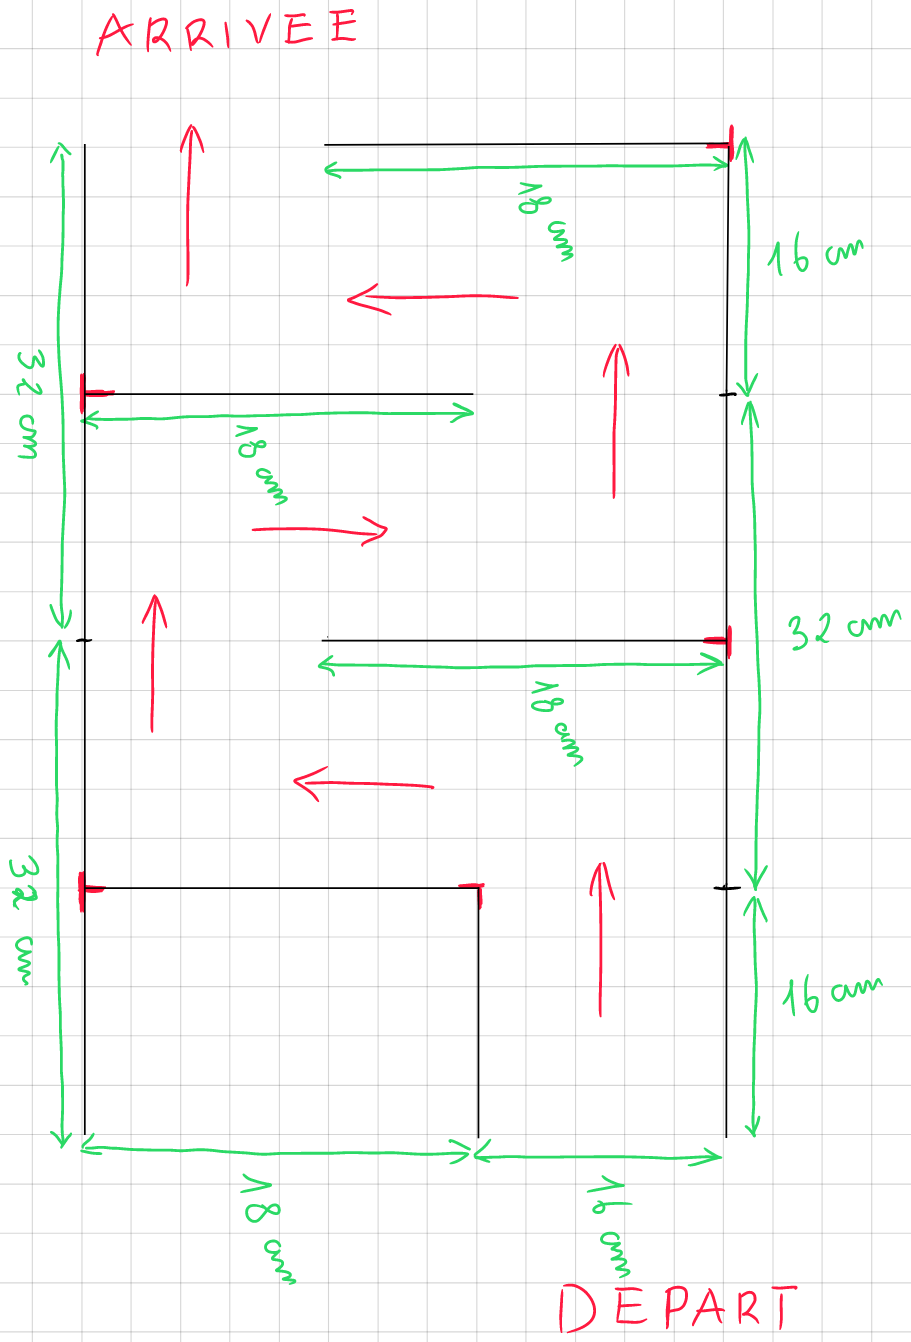 ARRIVEE
18 cm
16 cm
32 cm
18 cm
32 cm
18 cm
32 cm
16 cm
18 cm
16 cm
DEPART